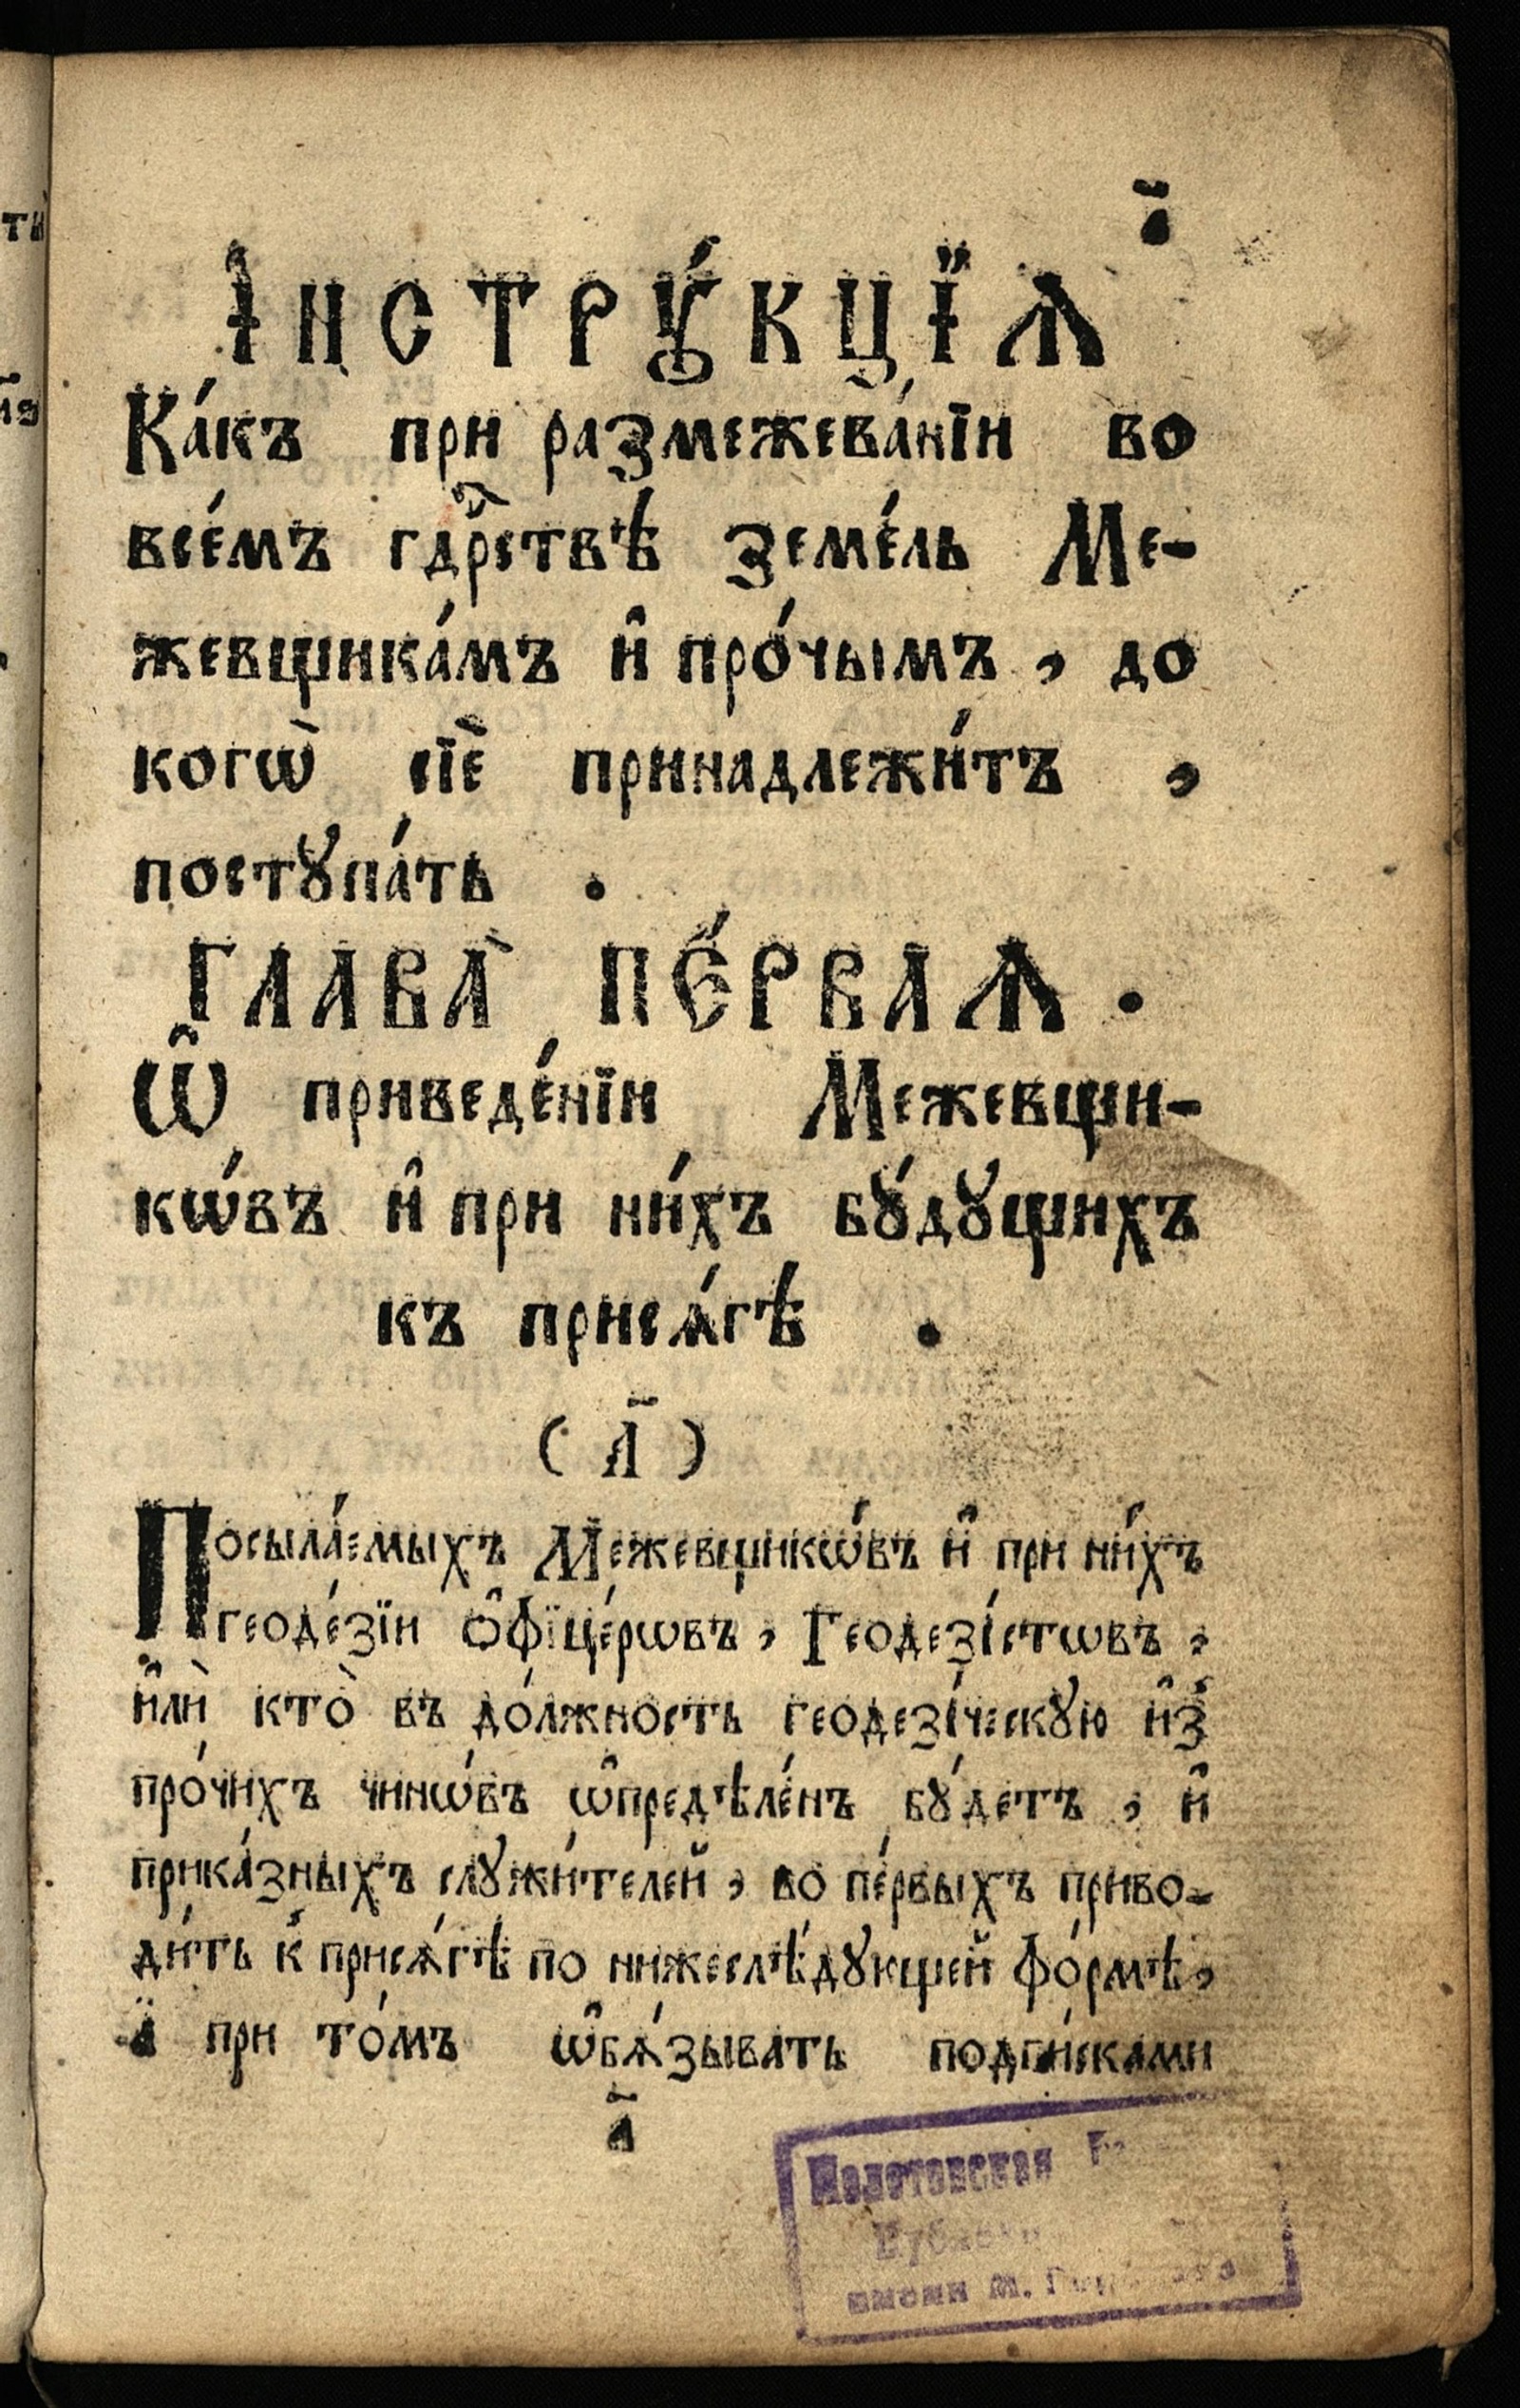 а҃
І҆НСТРꙊ́КЦЇѦ
Ка́къ при размежева́нїи во
все́мъ гд҇рствѣ земе́ль Ме-
жевщика́мъ и҆ про́чымъ, до
когѡ̀ сїѐ принадлежи́тъ,
постꙋпа́ть.
ГЛАВА̀ ПЕ́РВАѦ.
Ѡ҆ приведе́нїи Межевщи-
кѡ́въ и҆ при ни́хъ бꙋ́дꙋщихъ
къ прися́гѣ.
(а҃)
Посыла́емыхъ Межевщикѡ́въ и҆ при ни́хъ
геоде́зїи О҆фїце́рѡвъ, Геодезі́стѡвъ,
и҆лѝ кто̀ въ до́лжность геодезі́ческꙋю и҆з̾
про́чихъ чинѡ́въ ѡ҆предѣле́нъ бꙋ́детъ, и҆
прика́зныхъ слꙋжи́телей, во пе́рвыхъ приво-
ди́ть к̾ присѧ́гѣ по нижеслѣ́дꙋющей фо́рмѣ,
а҆ при то́мъ ѡ҆бѧ́зывать подпи́сками
а҃
имени М.